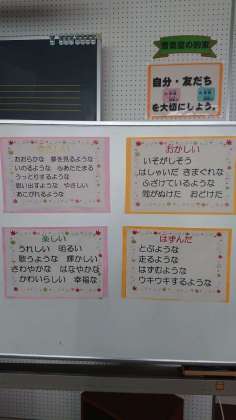 音楽室の約束
自分・友だち
を大切にしよう。
おおらかな 夢を見るような
いのるような 心あたたまる
うっとりするような
思い出すような やさしい
あこがれるような
おかしい
いそがしそう
はしゃいだ きまぐれな
ふざけているような
間がぬけた おどけた
楽しい
うれしい 明るい
歌うような 輝かしい
さわやかな はなやかな
かわいらしい 幸福な
はずんだ
とぶような
走るような
はずむような
ウキウキするような